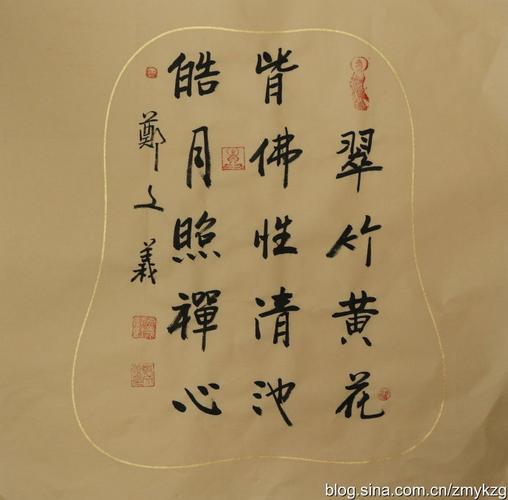 翠竹黄花
皆佛性清池
皓月照禪心
鄭文義
blog.sina.com.cn/zmykzg